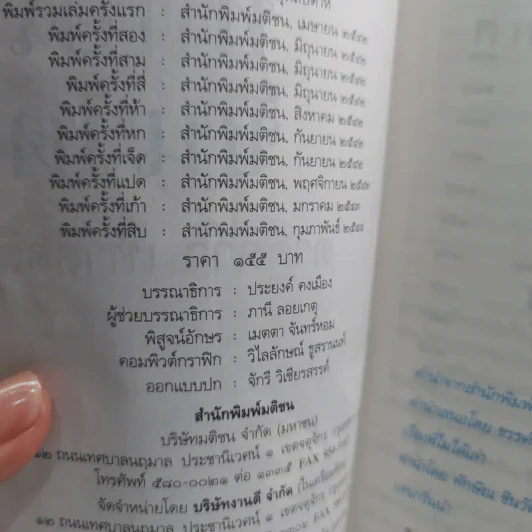 พิมพ์รวมเล่มครั้งแรก : สำนักพิมพ์มติชน, เมษายน ๒๕๔๒
พิมพ์ครั้งที่สอง : สำนักพิมพ์มติชน, มิถุนายน ๒๕๔๒
พิมพ์ครั้งที่สาม : สำนักพิมพ์มติชน, มิถุนายน ๒๕๔๒
พิมพ์ครั้งที่สี่ : สำนักพิมพ์มติชน, มิถุนายน ๒๕๔๒
พิมพ์ครั้งที่ห้า : สำนักพิมพ์มติชน, สิงหาคม ๒๕๔๒
พิมพ์ครั้งที่หก : สำนักพิมพ์มติชน, กันยายน ๒๕๔๒
พิมพ์ครั้งที่เจ็ด : สำนักพิมพ์มติชน, กันยายน ๒๕๔๒
พิมพ์ครั้งที่แปด : สำนักพิมพ์มติชน, พฤศจิกายน ๒๕๔๒
พิมพ์ครั้งที่เก้า : สำนักพิมพ์มติชน, มกราคม ๒๕๔๓
พิมพ์ครั้งที่สิบ : สำนักพิมพ์มติชน, กุมภาพันธ์
ราคา ๑๕๕ บาท
บรรณาธิการ : ประยงค์ คงเมือง
ผู้ช่วยบรรณาธิการ : ภานี ลอยเกตุ
พิสูจน์อักษร : เมตตา จันทร์หอม
คอมพิวต์กราฟิก : วิไลลักษณ์ ธูสรานนท์
ออกแบบปก : จักรี วิเชียรสรรค์
สำนักพิมพ์มติชน
บริษัทมติชน จำกัด (มหาชน)
๑๒ ถนนเทศบาลนฤมาล ประชานิเวศน์ ๑ เขตจตุจักร
โทรศัพท์ ๕๘๐-๐๐๒๑ ต่อ ๑๓๓๕ FAX
จัดจำหน่ายโดย บริษัทงานดี จำกัด
๑๒ ถนนเทศบาลนฤมาล ประชานิเวศน์ ๑ เขตจตุจักร
คำนำจากสำนักพิมพ์
คำนำเสนอโดย
คำนำโดย ทักษิณ